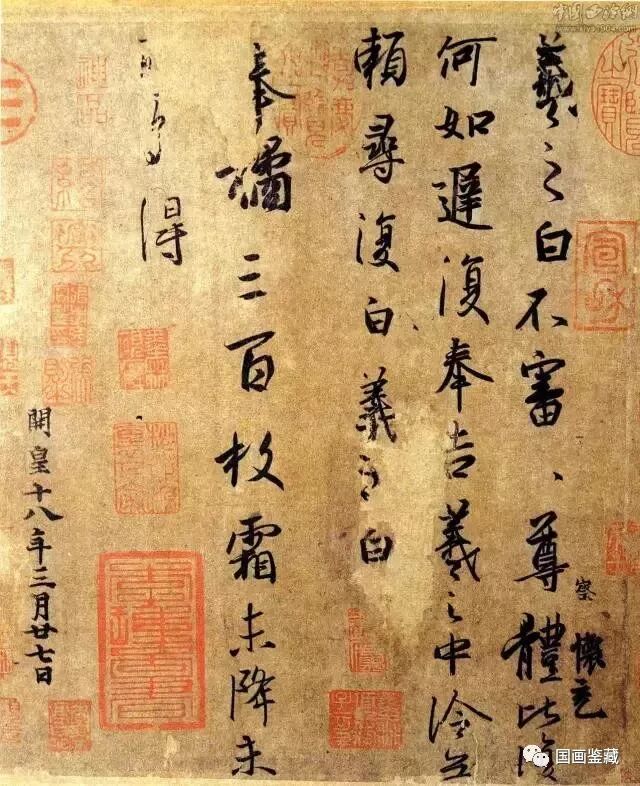 羲之白不審、尊體比復
察 懷充
何如遲復奉告羲之中冷無
賴尋復白羲之白
奉橘三百枚霜未降未
可多得
開皇十八年三月廿七日
宣和
神品
中国西泠网
国画鉴藏